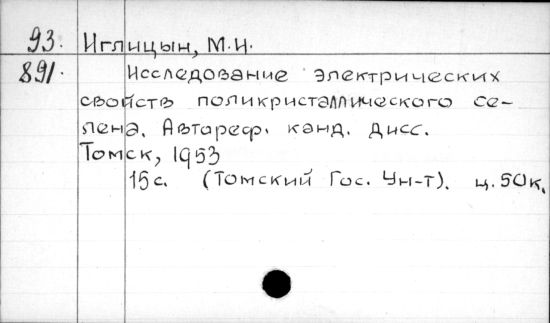 93. Иглицын, М.И.
891. Исследование электрических
свойств поликристаллического се-
лена. Автореф. канд. дисс.
Томск, 1953
15с. (Томский Гос. Ун-т). ц. 50к.